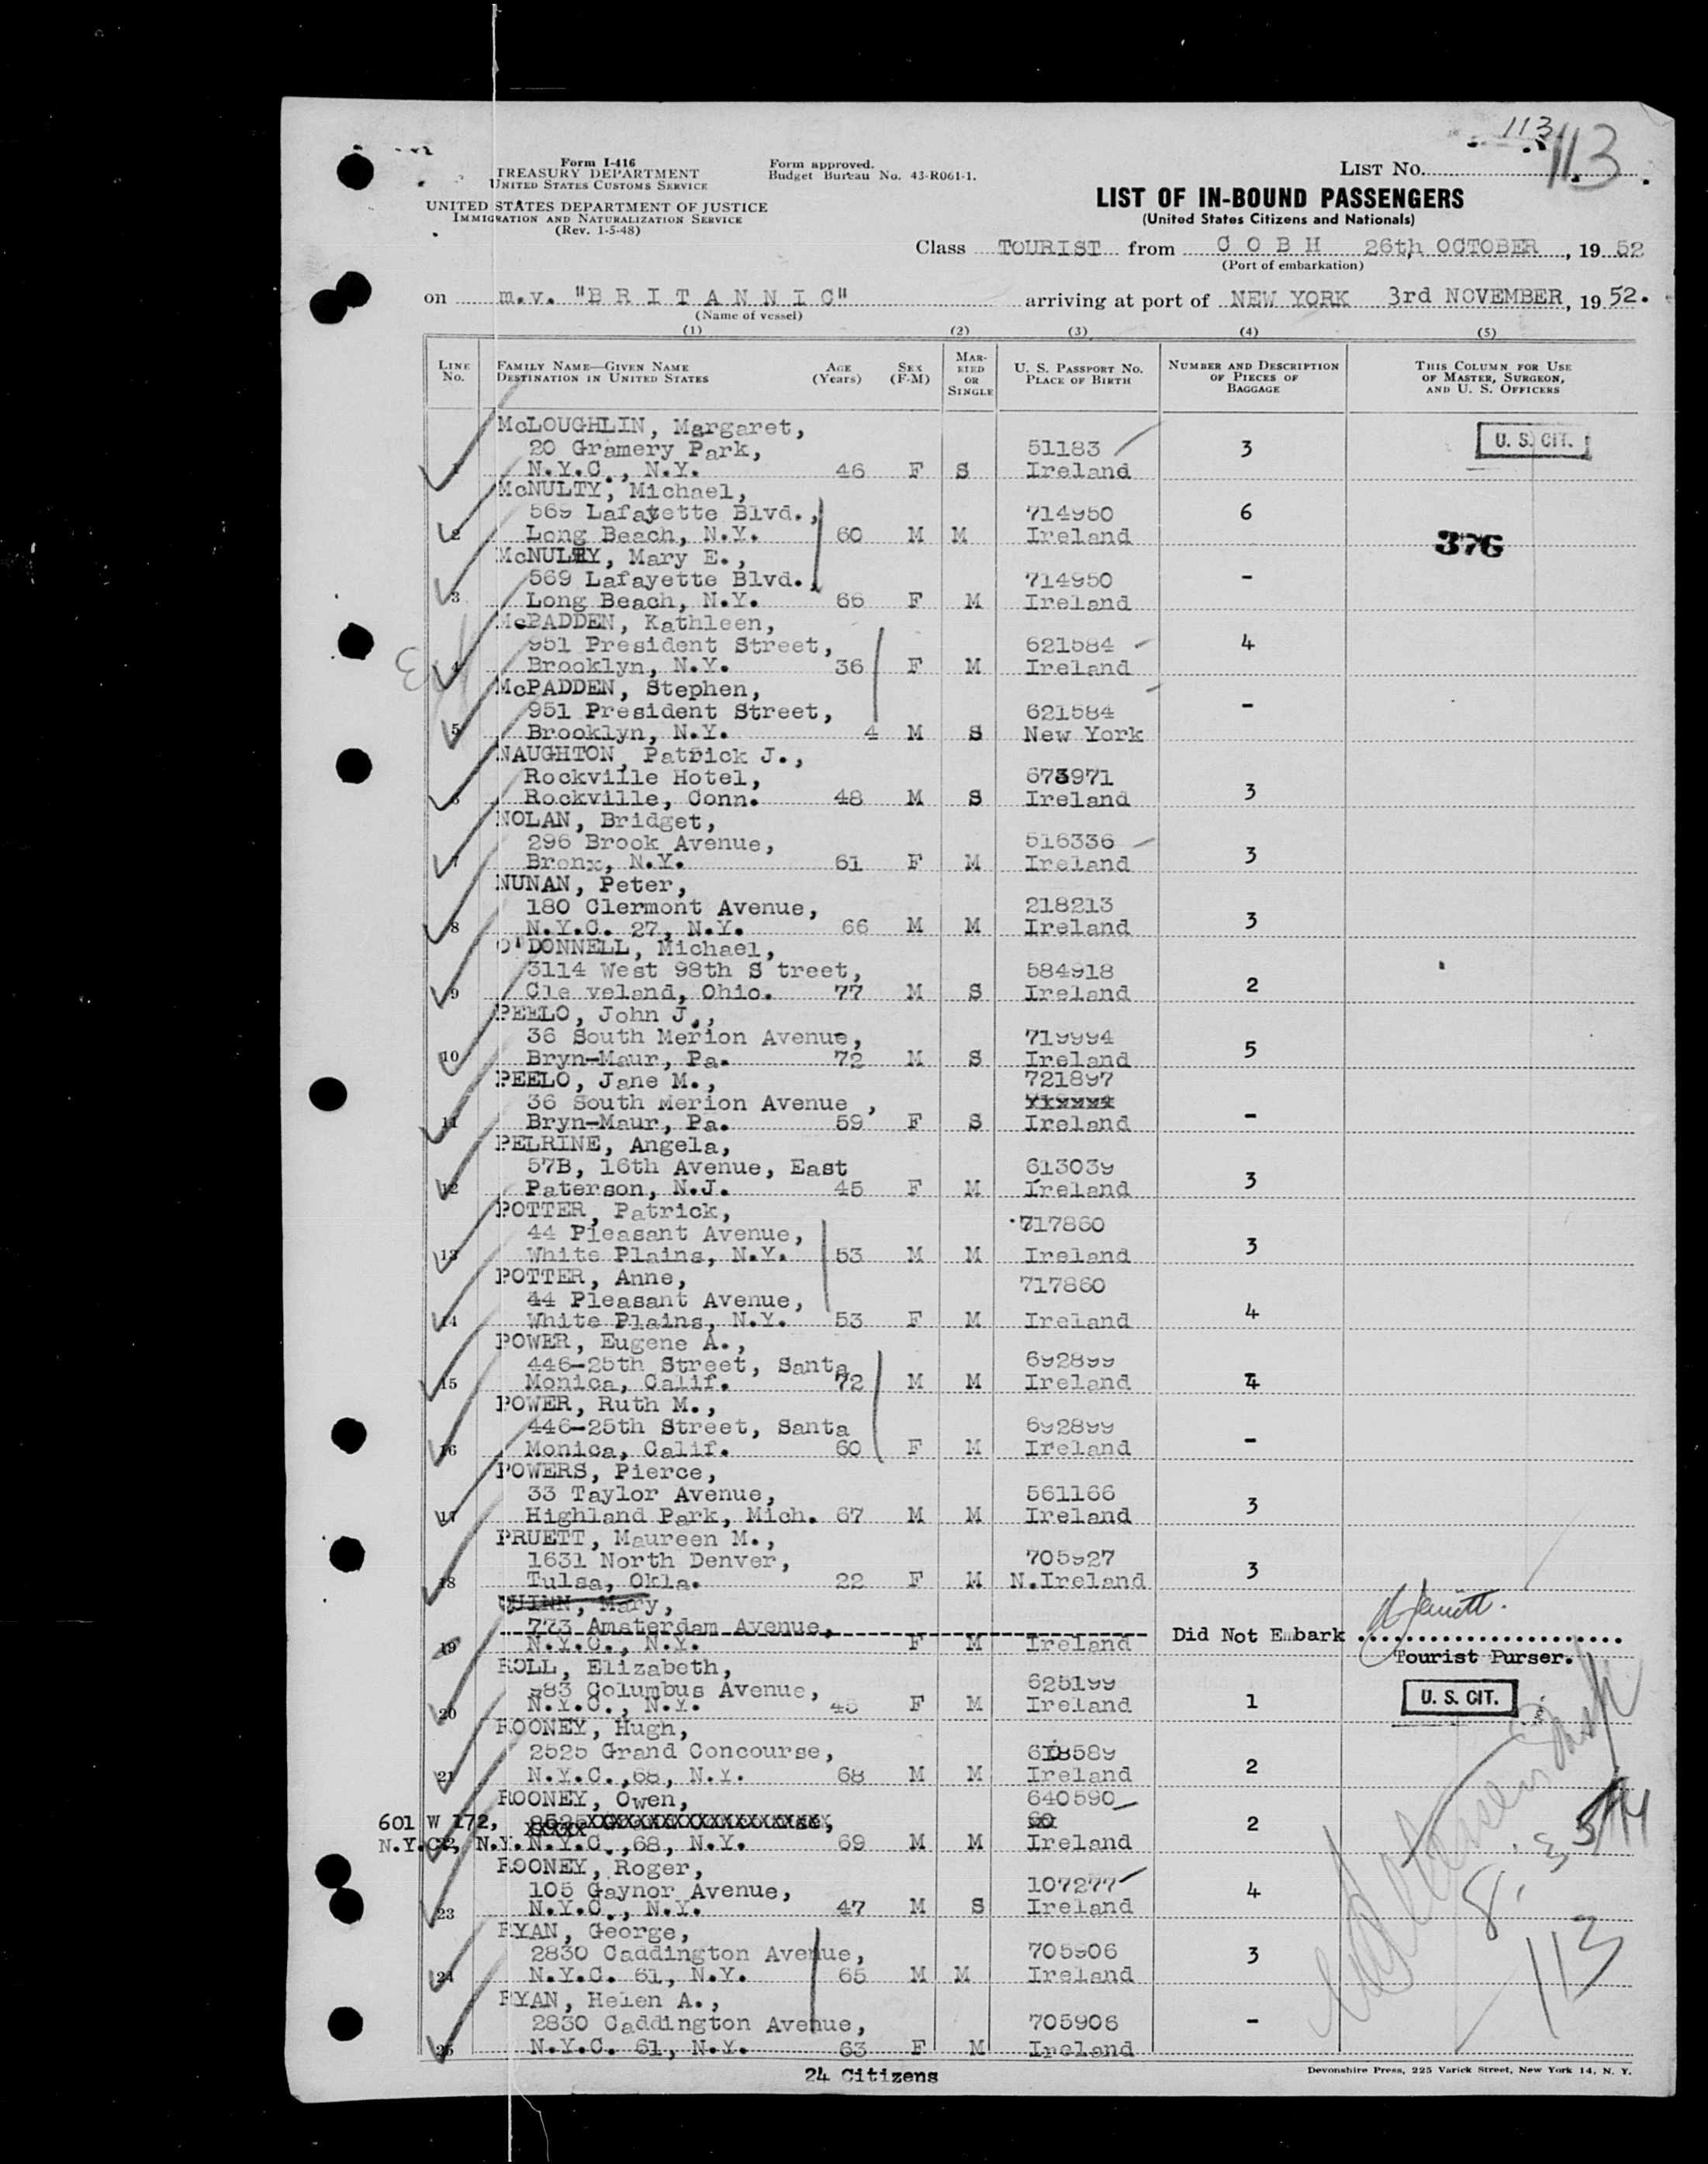 113
113
Form I-416
TREASURY DEPARTMENT
UNITED STATES CUSTOMS SERVICE
UNITED STATES DEPARTMENT OF JUSTICE
IMMIGRATION AND NATURALIZATION SERVICE
(Rev. 1-5-48)
Form approved.
Budget Bureau No. 43-R061-1.
LIST NO.
LIST OF IN-BOUND PASSENGERS
(United States Citizens and Nationals)
Class TOURIST from C O B H 26th, OCTOBER, 19 52
(Port of embarkation)
on m.v. "B R I T A N N I C" arriving at port of NEW YORK 3rd NOVEMBER, 19 52.
(Name of vessel)
(1) (2) (3) (4) (5)
LINE NO. FAMILY NAME—GIVEN NAME DESTINATION IN UNITED STATES AGE (Years) SEX (F-M) MARRIED OR SINGLE U. S. PASSPORT NO. PLACE OF BIRTH NUMBER AND DESCRIPTION OF PIECES OF BAGGAGE THIS COLUMN FOR USE OF MASTER, SURGEON, AND U. S. OFFICERS
McLOUGHLIN, Margaret,
20 Gramery Park, 51183 3 U. S. CIT.
1 N.Y.C., N.Y. 46 F S Ireland
McNULTY, Michael,
569 Lafayette Blvd., 714950 6
2 Long Beach, N.Y. 60 M M Ireland 376
McNULTY, Mary E.,
569 Lafayette Blvd., 714950 -
3 Long Beach, N.Y. 66 F M Ireland
McPADDEN, Kathleen,
951 President Street, 621584 4
4 Brooklyn, N.Y. 36 F M Ireland
McPADDEN, Stephen,
951 President Street, 621584 -
5 Brooklyn, N.Y. 4 M S New York
NAUGHTON, Patrick J.,
Rockville Hotel, 673971
6 Rockville, Conn. 48 M S Ireland 3
NOLAN, Bridget,
296 Brook Avenue, 516336
7 Bronx, N.Y. 61 F M Ireland 3
NUNAN, Peter,
180 Clermont Avenue, 218213
8 N.Y.C. 27, N.Y. 66 M M Ireland 3
O'DONNELL, Michael,
3114 West 98th S treet, 584918
9 Cle veland, Ohio. 77 M S Ireland 2
PEELO, John J.,
36 South Merion Avenue, 719994
10 Bryn-Maur, Pa. 72 M S Ireland 5
PEELO, Jane M., 721897
36 South Merion Avenue ,
11 Bryn-Maur, Pa. 59 F S Ireland -
PELRINE, Angela,
57B, 16th Avenue, East 613039
12 Paterson, N.J. 45 F M Ireland 3
POTTER, Patrick,
44 Pleasant Avenue, 717860
13 White Plains, N.Y. 53 M M Ireland 3
POTTER, Anne, 717860
44 Pleasant Avenue,
14 White Plains, N.Y. 53 F M Ireland 4
POWER, Eugene A.,
446-25th Street, Santa 692899
15 Monica, Calif. 72 M M Ireland 4
POWER, Ruth M.,
446-25th Street, Santa 692899
16 Monica, Calif. 60 F M Ireland -
POWERS, Pierce,
33 Taylor Avenue, 561166
17 Highland Park, Mich. 67 M M Ireland 3
PRUETT, Maureen M.,
1631 North Denver, 705927
18 Tulsa, Okla. 22 F M N.Ireland 3
QUINN, Mary,
773 Amsterdam Avenue,
19 N.Y.C., N.Y. F M Ireland Did Not Embark
Tourist Purser.
ROLL, Elizabeth,
583 Columbus Avenue, 625199
20 N.Y.C., N.Y. 45 F M Ireland 1 U. S. CIT.
ROONEY, Hugh,
2525 Grand Concourse, 618589
21 N.Y.C.,68, N.Y. 68 M M Ireland 2
ROONEY, Owen, 640590
601 W 172, 2
N.Y.C., N.Y. 22 N.Y.C.,68, N.Y. 69 M M Ireland
ROONEY, Roger,
105 Gaynor Avenue, 107277 4
23 N.Y.C., N.Y. 47 M S Ireland
RYAN, George,
2830 Caddington Avenue, 705906 3
24 N.Y.C. 61, N.Y. 65 M M Ireland
RYAN, Helen A.,
2830 Caddington Avenue, 705906 -
25 N.Y.C. 61, N.Y. 63 F M Ireland
113
24 Citizens
Devonshire Press, 225 Varick Street, New York 14, N. Y.